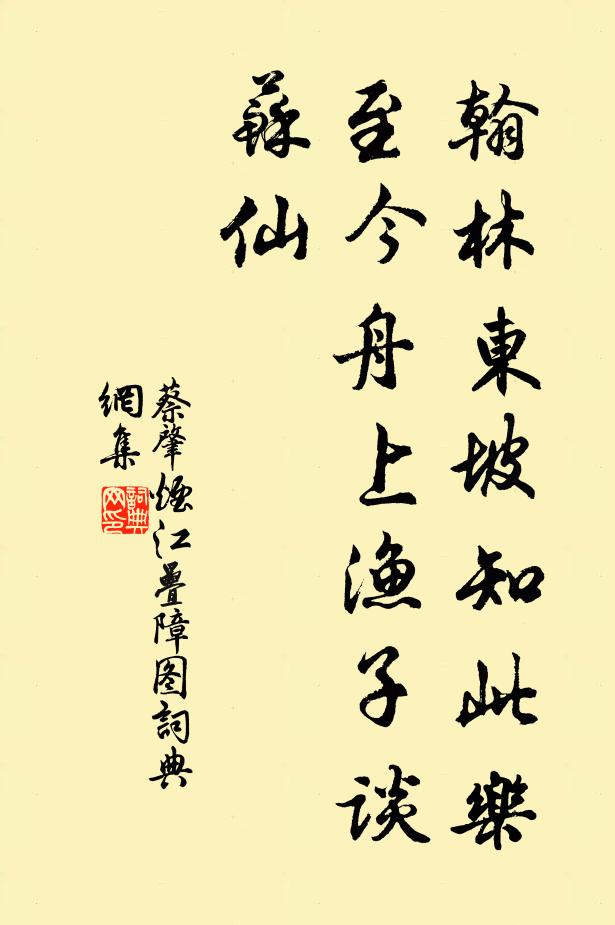 翰林東坡知此樂
至今舟上漁子談
蘇仙
蔡肇煙江疊障图詞典
網集
詞典
网印